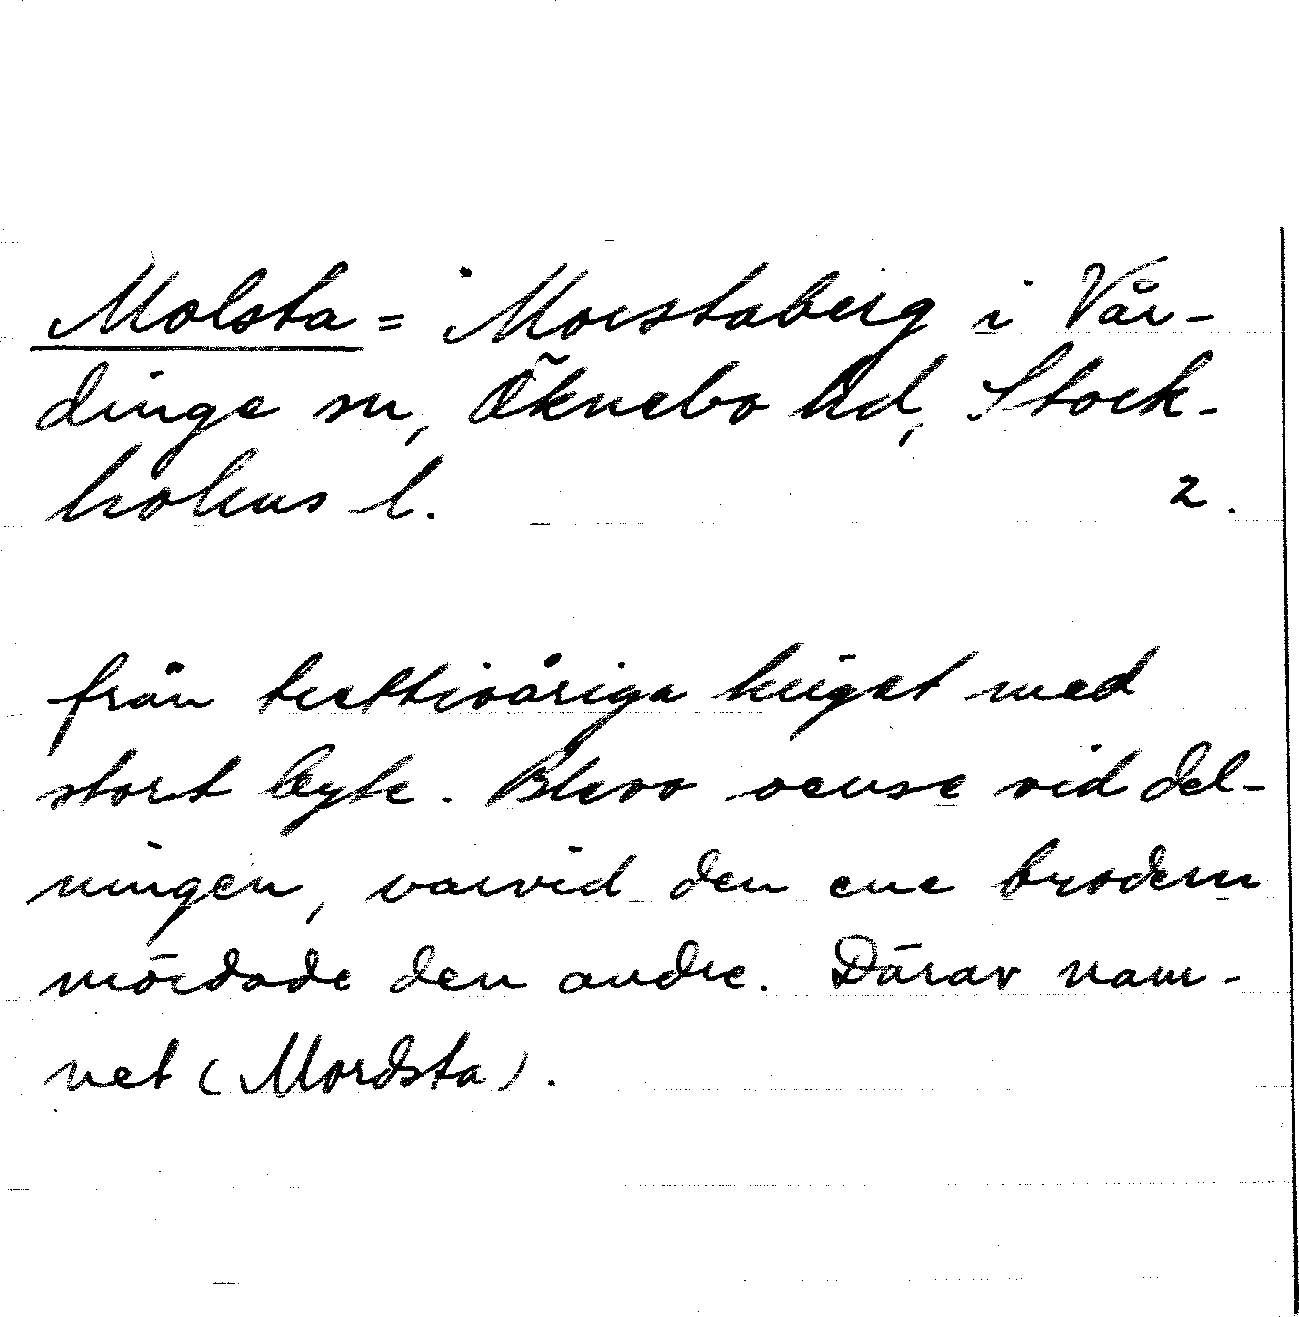 Molsta = Morstaberg i Vår-
dinge sn, Öknebo hd, Stock-
holms l. 2.
från trettioåriga kriget med
stort byte. Blevo oense vid del-
ningen, varvid den ene brodern
mördade den andre. Därav nam-
net (Mordsta).